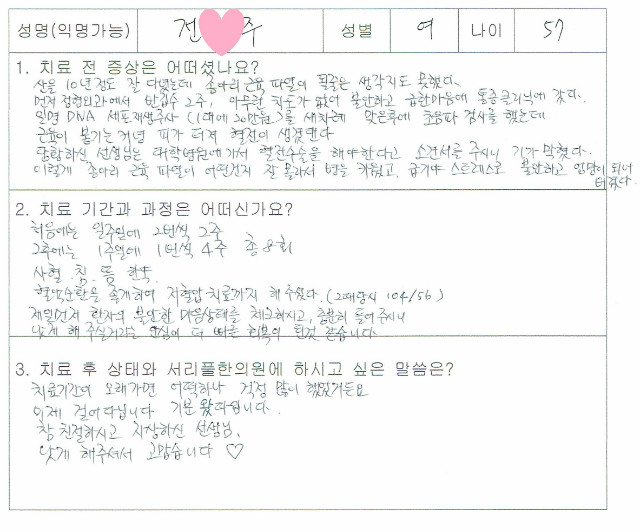 성명(익명가능) 전 주 성별 여 나이 57
1. 치료 전 증상은 어떠셨나요?
산을 10년정도 잘 다녔는데 종아리 근육 파열이 될줄은 생각지도 못했다.
먼저 정형외과에서 반깁스 2주, 아무런 차도가 없어 불안하고 급한마음에 통증클리닉에 갔다.
일명 DNA 세포재생주사 (1대에 20만원)를 세차례 맞은후에 초음파 검사를 했는데
근육이 붙기는 커녕 피가 터져 혈전이 생겼댄다
당황하신 선생님은 대학병원에가서 혈전수술을 해야한다고 소견서를 주시니 기가 막혔다.
이렇게 종아리 근육 파열이 어떤건지 잘 몰라서 병을 키웠고, 급기야 스트레스로 불안하고 엉망이 되어
터졌다.
2. 치료 기간과 과정은 어떠신가요?
처음에는 일주일에 2번씩 2주
2주후에는 1주일에 1번씩 4주 총 8회
사혈. 침. 뜸 한약.
혈액순환을 좋게하여 저혈압 치료까지 해 주셨다. (그때당시 104/56)
제일먼저 환자의 불안한 마음상태를 체크하시고, 충분히 들어주시니
낫게 해 주실거라는 안심이 더 빠른 회복이 된것 같습니다
3. 치료 후 상태와 서리풀한의원에 하시고 싶은 말씀은?
치료기간이 오래가면 어떡하나 걱정 많이 했었거든요
이제 걸어다닙니다 기분 왔다입니다.
참 친절하시고 자상하신 선생님,
낫게 해주셔서 고맙습니다 ♡